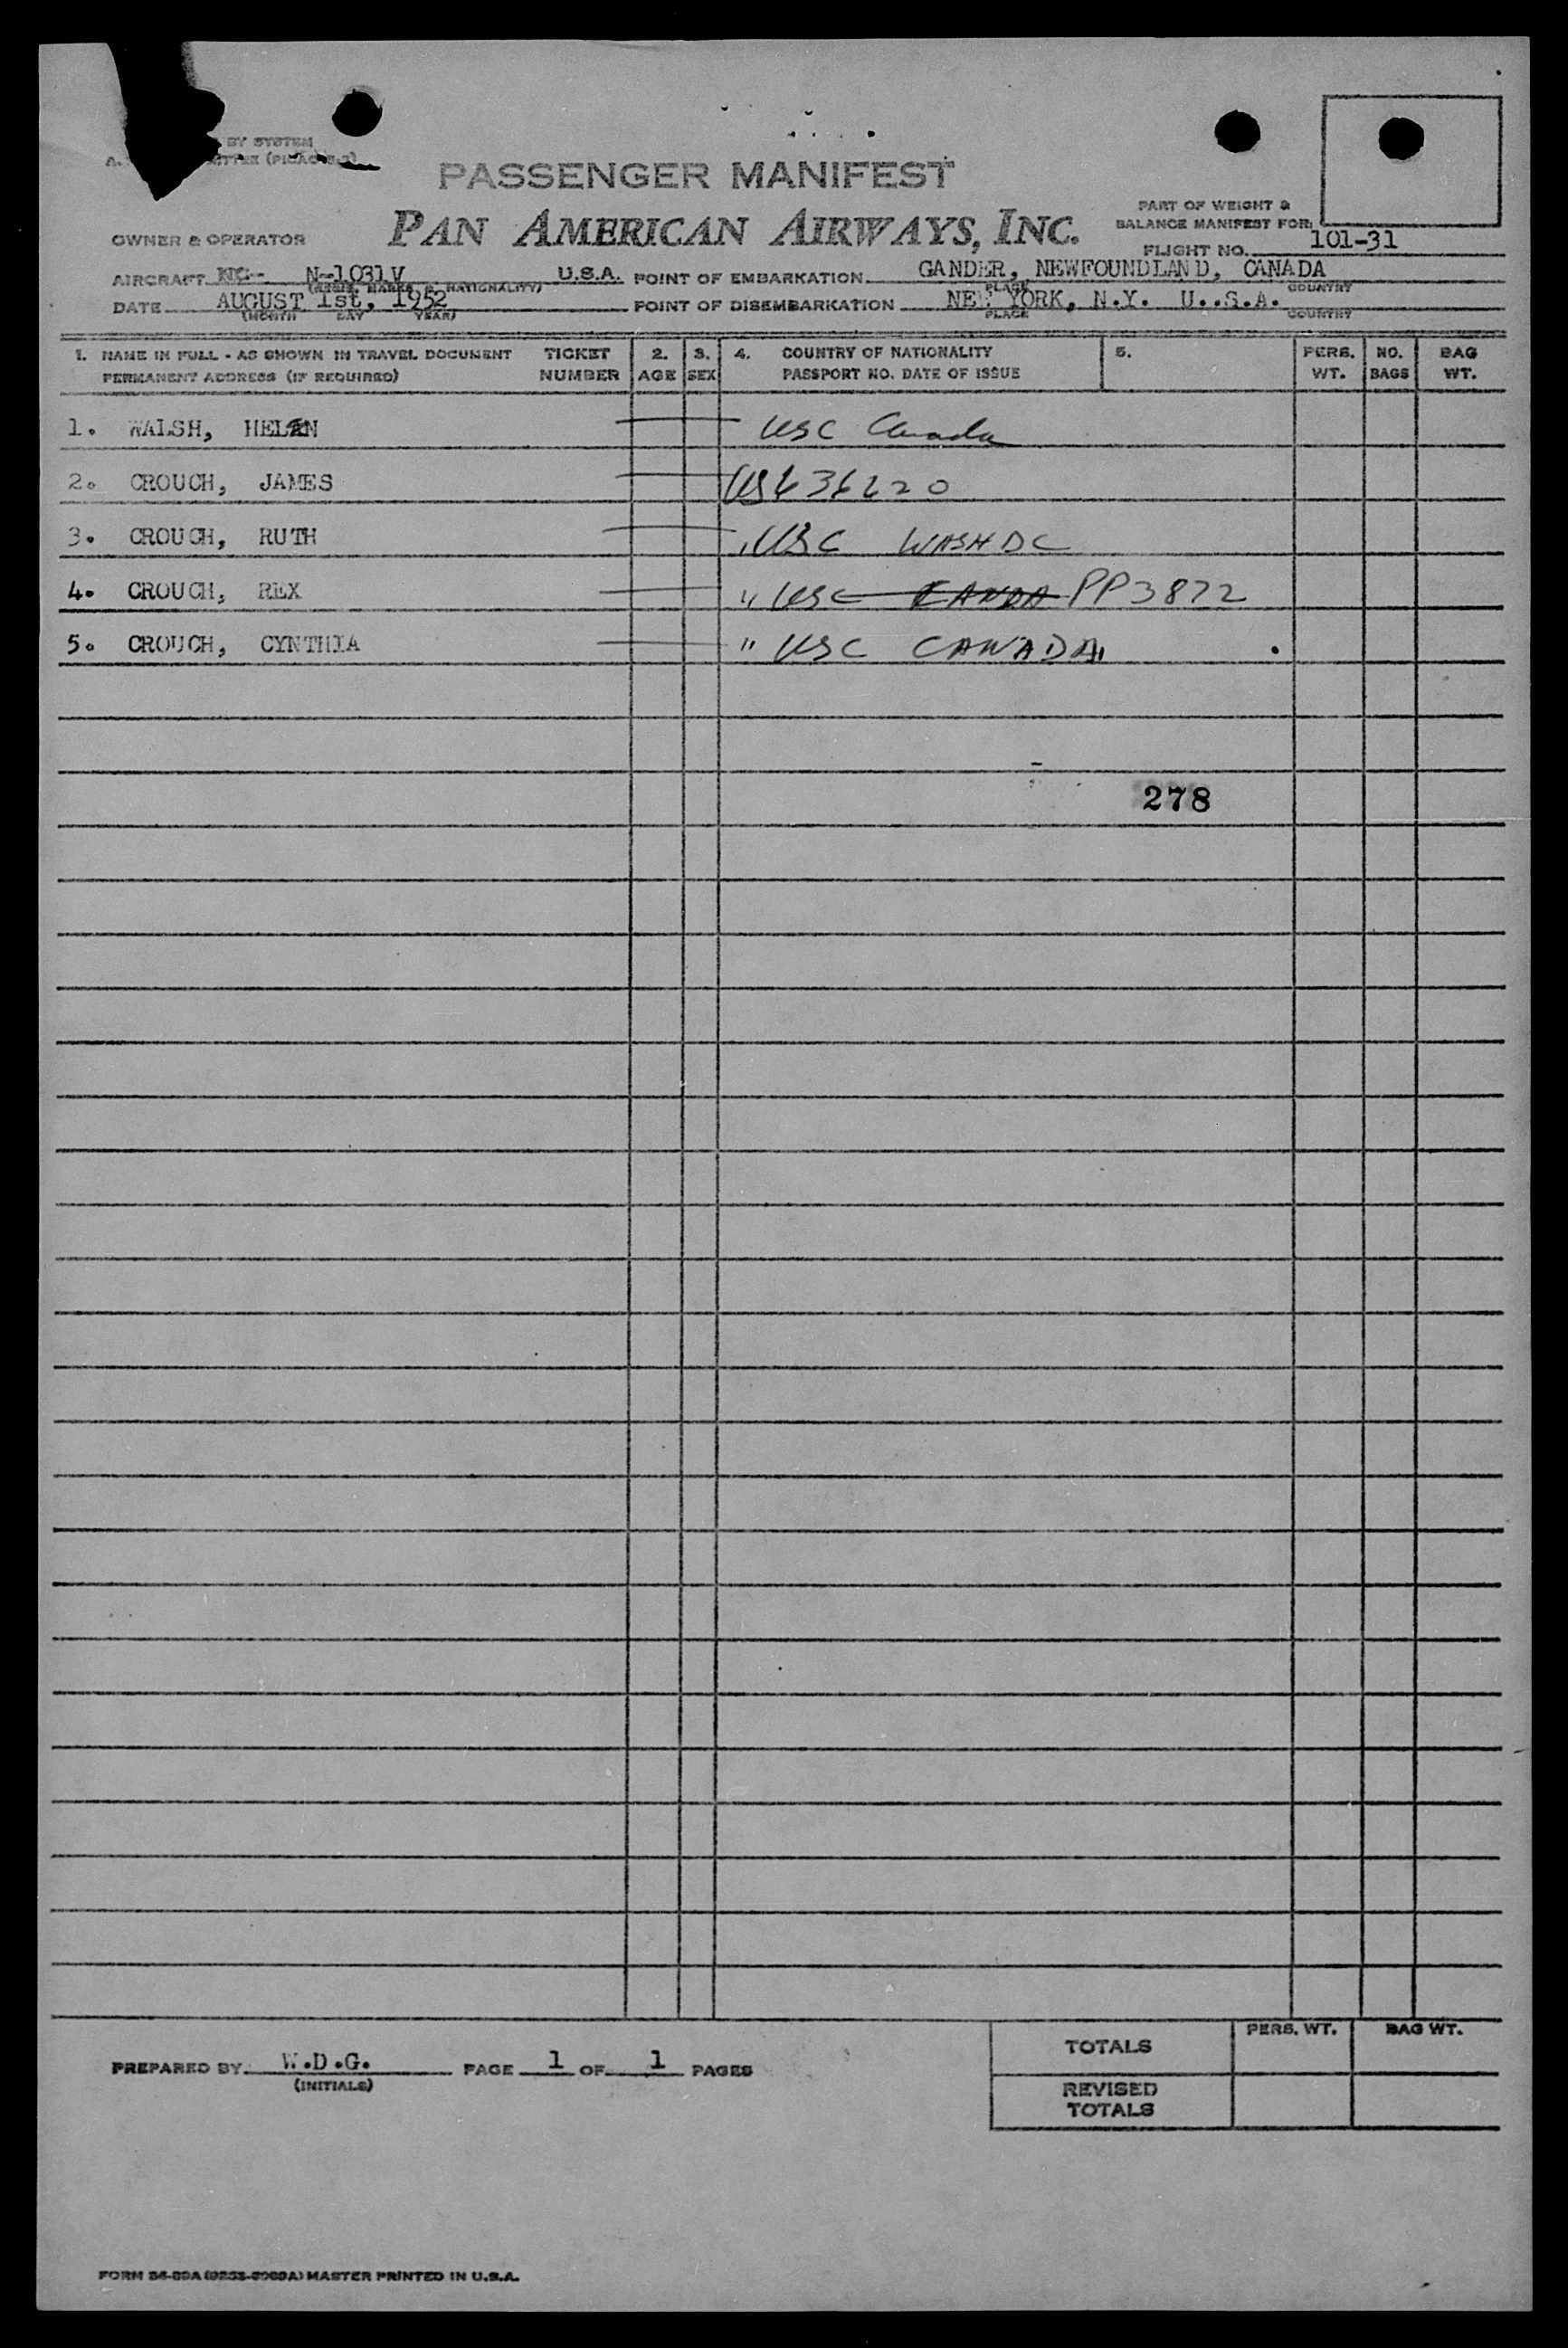 BY SYSTEM
PASSENGER MANIFEST
PAN AMERICAN AIRWAYS, INC.
PART OF WEIGHT &
BALANCE MANIFEST FOR:
OWNER & OPERATOR
FLIGHT NO. 101-31
AIRCRAFT N-1031V U.S.A. POINT OF EMBARKATION GANDER, NEWFOUNDLAND, CANADA
(REGIS. MARKS & NATIONALITY) PLACE COUNTRY
DATE AUGUST 1st, 1952 POINT OF DISEMBARKATION NEW YORK, N.Y. U..S.A.
(MONTH DAY YEAR) PLACE COUNTRY
1. NAME IN FULL - AS SHOWN IN TRAVEL DOCUMENT TICKET 2. 3. 4. COUNTRY OF NATIONALITY 5. PERS. NO. BAG
PERMANENT ADDRESS (IF REQUIRED) NUMBER AGE SEX PASSPORT NO. DATE OF ISSUE WT. BAGS WT.
1. WALSH, HELEN USC Canada
2. CROUCH, JAMES US636220
3. CROUCH, RUTH USC WASH DC
4. CROUCH, REX " USC CANDA PP3872
5. CROUCH, CYNTHIA " USC CANADA
278
TOTALS PERS. WT. BAG WT.
PREPARED BY W.D.G. PAGE 1 OF 1 PAGES
(INITIALS)
REVISED
TOTALS
MASTER PRINTED IN U.S.A.